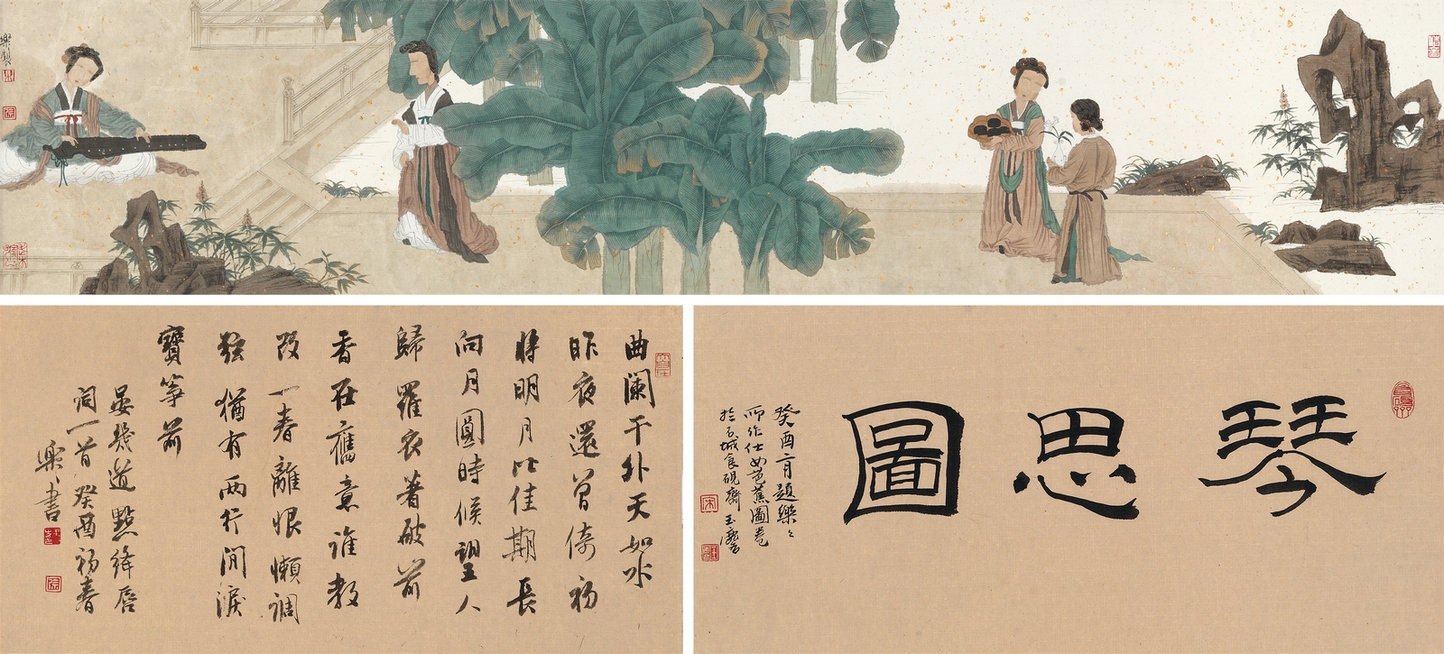 樂製
琴思圖
癸酉二月題樂〻
所作仕女芭蕉圖卷
於石城食硯齋玉
曲闌干外天如水
昨夜還曾倚初
將明月比佳期長
向月圓時候望人
歸羅衣著破前
香在舊意誰教
改一春離恨懶調
絃猶有兩行閒淚
寶箏前
晏幾道點絳唇
詞一首癸酉初春
樂〻書